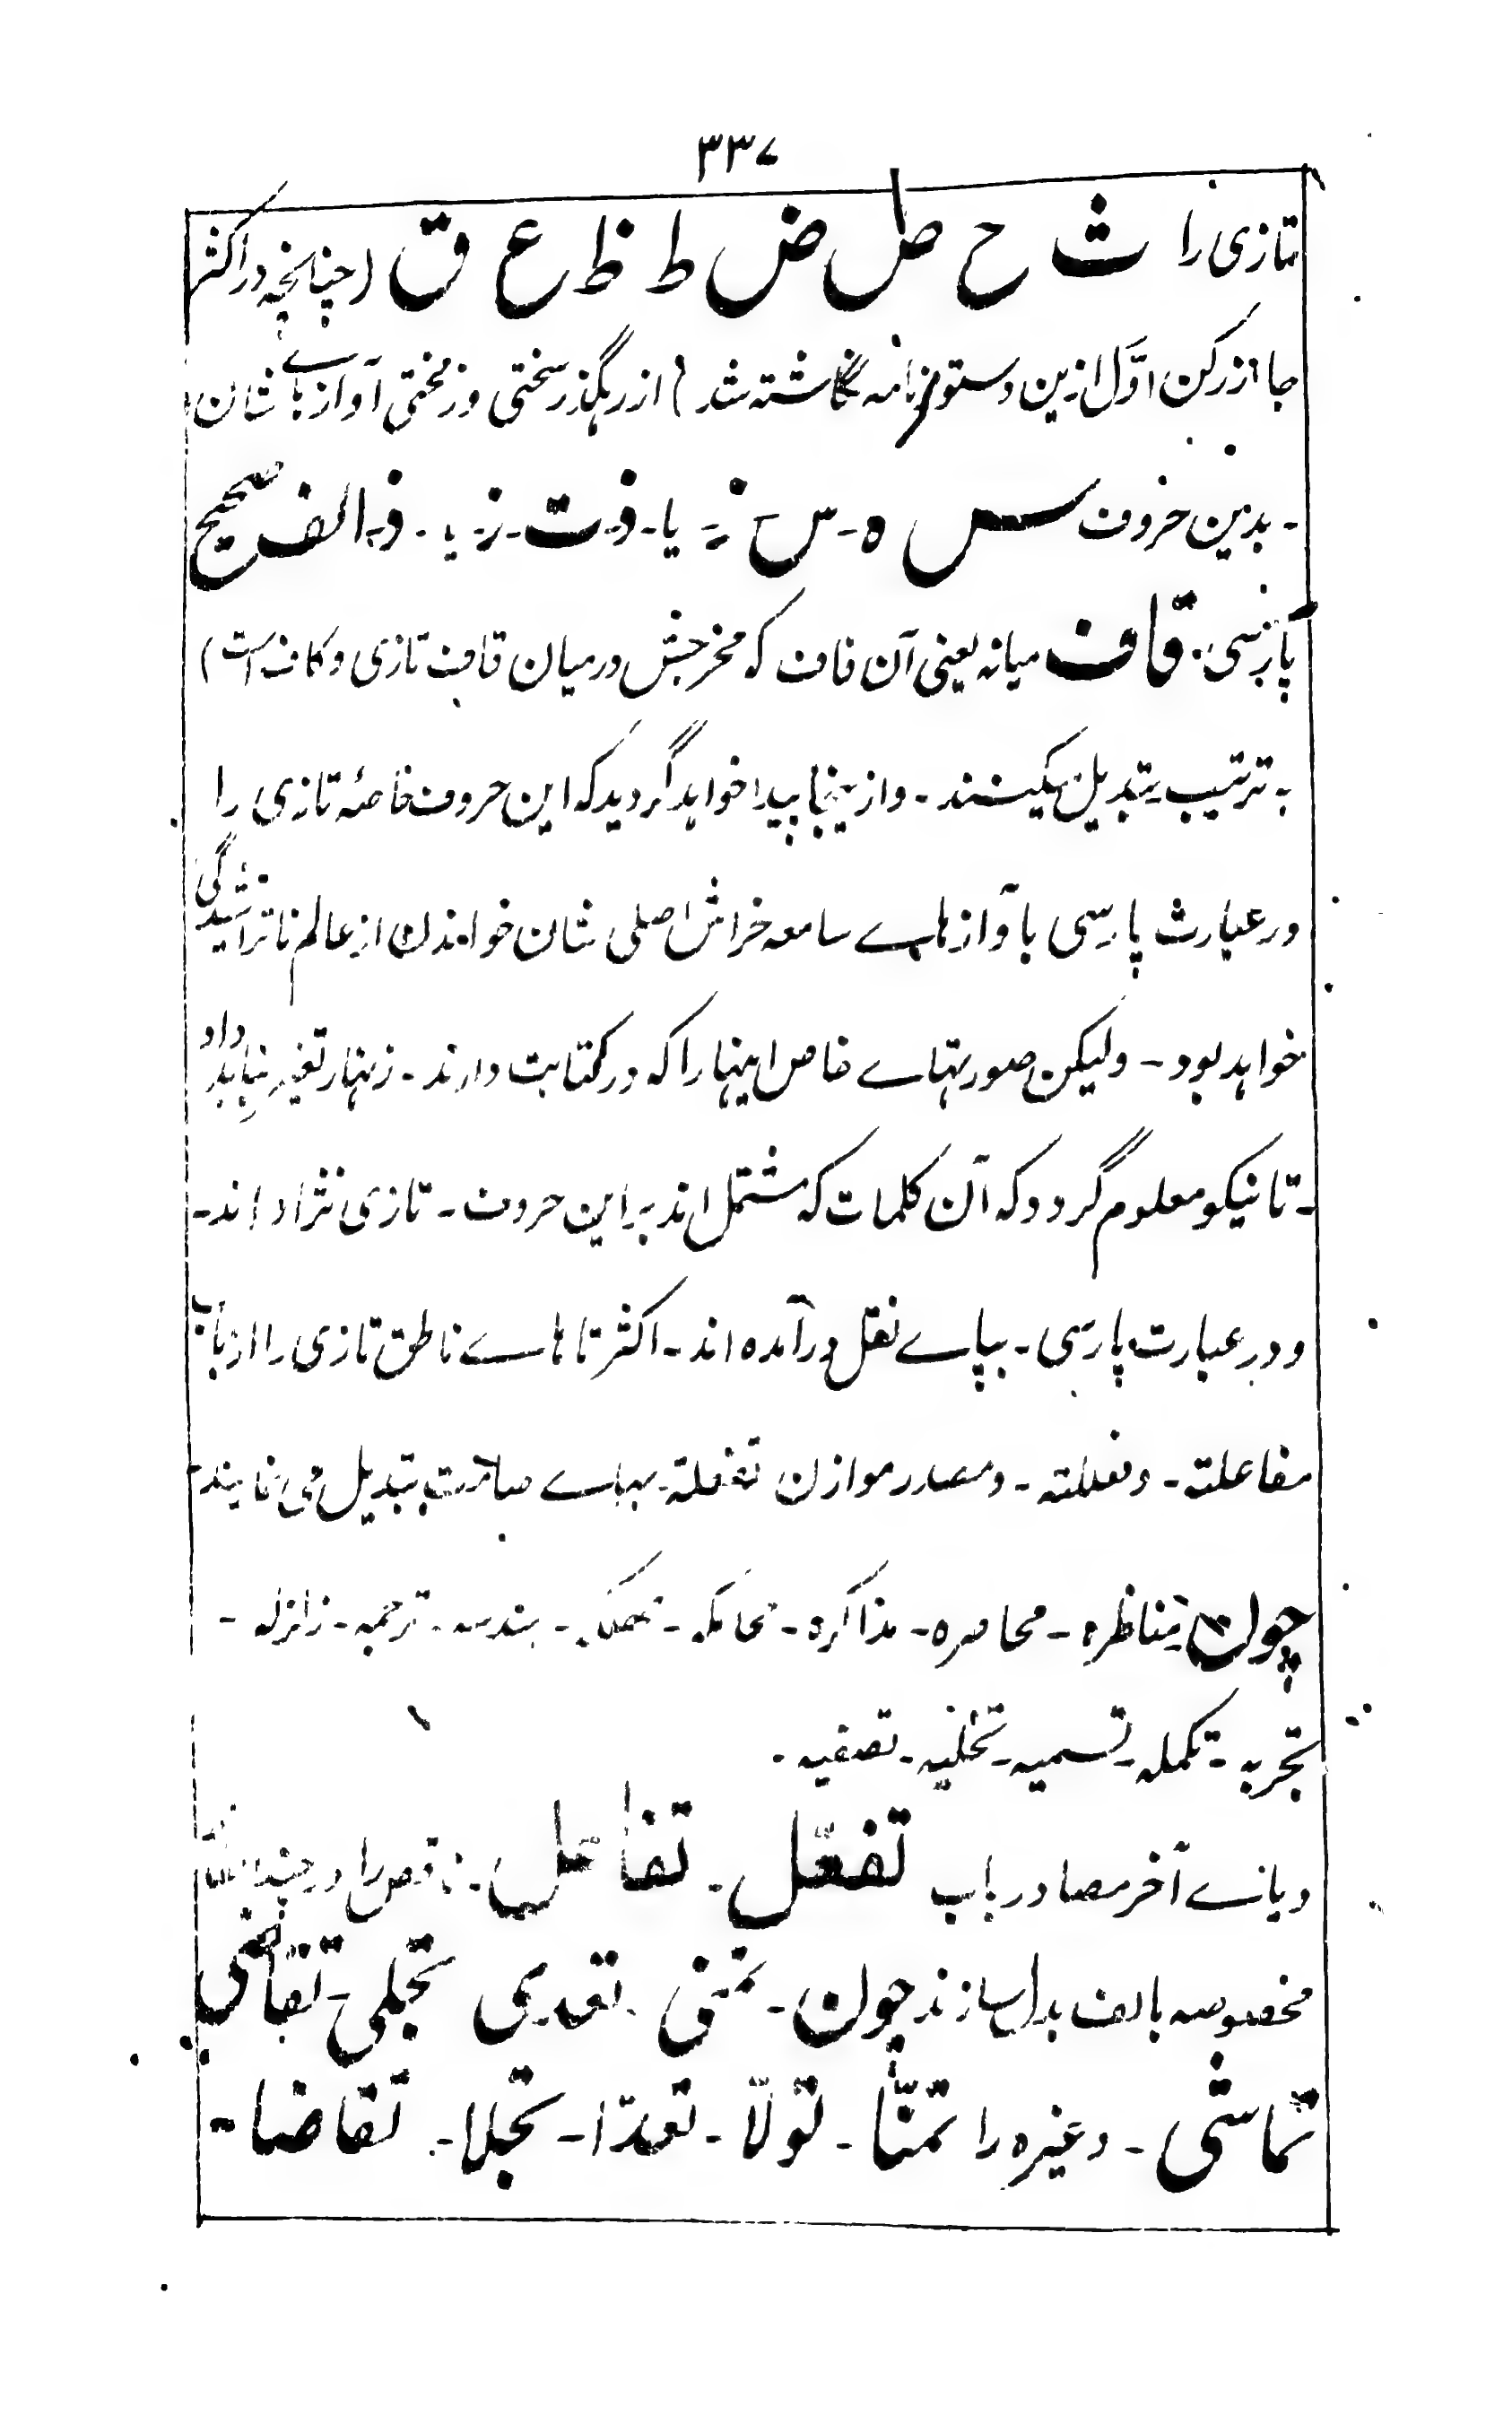 ۳۳۷
تازی را ث ح ص ض ط ظ ع ق (چنانچه در اکثر
جا از رکن اوّل ازین دستورنامه نگاشته شد) از رهگذر سختی و زمختی آوازهاے شان
- بدین حروف س ه - س ز - یا - ذ - ت - ز - یا - ذ - الف صحیح
پارسی - قاف میانه یعنی آن قاف که مخرجش درمیان قاف تازی و کاف است)
به ترتیب تبدیل میکنند - و ازینجا پیدا خواهد گردید که این حروف خاصّه تازی را
در عبارت پارسی با آوازهاے سامعه خراش اصلی شان خواندن از عالم ناتراشیدگی
خواهد بود - ولیکن صورتهاے خاص اینها را که در کتابت دارند - زنهار تغیر نباید داد
- تا نیکو معلوم گردد که آن کلمات که مشتمل اند بر این حروف - تازی نژاد اند -
و در عبارت پارسی - بپاے نقل درآمده اند - اکثر تاهاے ناطق تازی را از باب
مفاعلته - و فعللته - و مصدر موازن تفعلة بهاے صامت تبدیل می نمایند
چون مناظره - محاصره - مذاکره - محاکمه - - هندسه - ترجمه - زلزله -
تجربه - تکمله - تسمیه - تخلیه - تصفیه -
و یاے آخر مصادر باب تفعّل - تفاعل - ناقص را در چند
مخصوصه بالف بدل سازند چون - تمنی - تعدی تجلی - تقاضی
تماشی - وغیره را تمنّا - تولّا - تعدّا - تجلا - تقاضا -